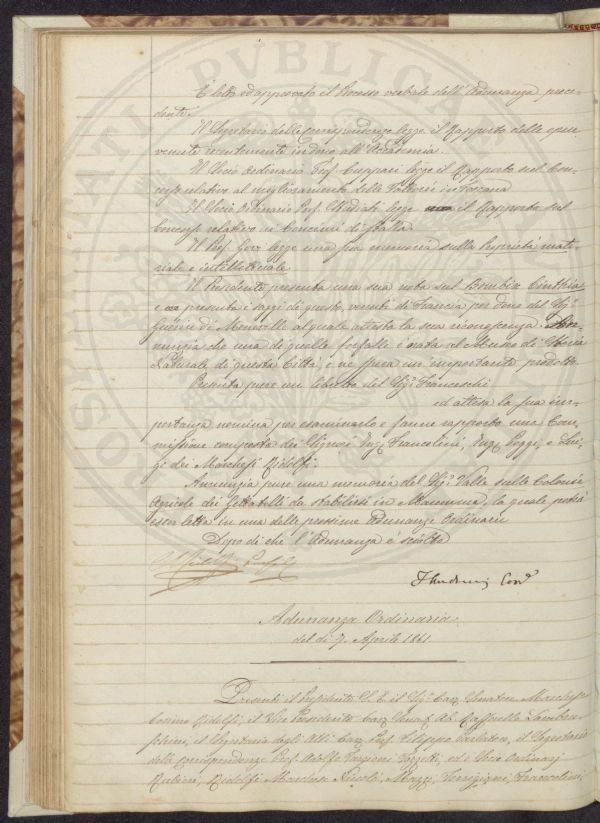 È letto ed approvato il Processo verbale dell'Adunanza prece-
dente.
Il Segretario delle corrispondenze legge il Rapporto delle opere
venute recentemente in dono all'Accademia.
Il Socio Ordinario Prof. Cuppari legge il Rapporto sul Con-
corso relativo al miglioramento delle Fattorie in Toscana
Il Socio Ordinario Prof. Studiati legge il Rapporto sul
Concorso relativo ai Concimi di stalla.
Il Prof. legge una sua memoria sulla Proprietà mate-
riale e intellettuale
Il Presidente presenta una sua nota sul Bombix Cinthia,
e presenta i saggi di questo, venuti di Francia per dono del Sigr
Guérin de Méneville al quale attesta la sua riconoscenza. An-
nunzia che una di quelle farfalle è nata al Museo di Storia
Naturale di questa Città, e ne spera un importante prodotto.
Presenta pure un libretto del Sigr Franceschi
ed attesa la sua im-
portanza nomina per esaminarlo e farne rapporto una Com-
missione composta dei Signori Ingr Francolini, Ingr Poggi, e Lui-
gi dei Marchesi Ridolfi.
Annunzia pure una memoria del Sigr Valle sulle Colonie
Agricole dei Gettatelli da stabilirsi in Maremma, la quale potrà
esser letta in una delle prossime Adunanze Ordinarie
Dopo di che l'Adunanza è sciolta
C. Ridolfi
Adunanza Ordinaria
del dì 7. Aprile 1861.
Presenti il Presidente S. E. il Sigr Cav. Senatore Marchese
Cosimo Ridolfi, il Vice Presidente Cav. Ab. Raffaello Lambru-
schini, il Segretario degli Atti Cav. Prof. Filippo Parlatore, il Segretario
delle Corrispondenze Prof. Adolfo Targioni Tozzetti, ed i Socii Ordinarj
Rubieri, Ridolfi Marchese Niccolò, Mazzi, Torrigiani, Francolini,